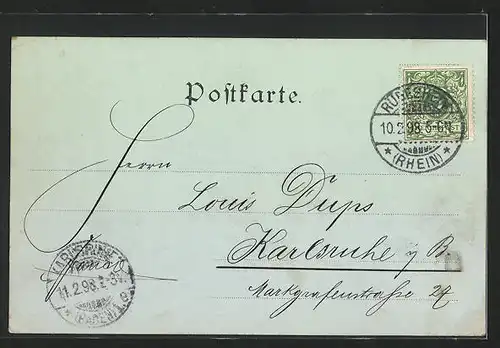 Postkarte.
RÜDESHEIM
10.2.98.5-6N.
* (RHEIN) *
Herrn
Louis Dups
Karlsruhe i/B.
Markgrafenstraße 27
KARLSRUHE
11.2.98.
(BADEN)